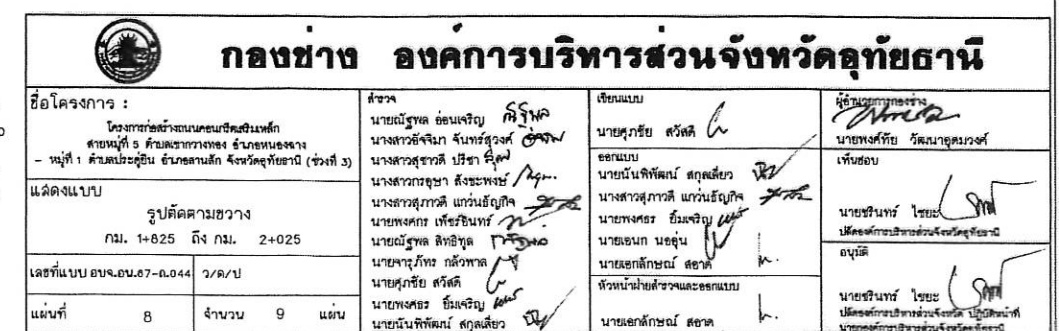 กองช่าง องค์การบริหารส่วนจังหวัดอุทัยธานี
ชื่อโครงการ :
โครงการก่อสร้างถนนคอนกรีตเสริมเหล็ก
สายหมู่ที่ 5 ตำบลเขากวางทอง อำเภอหนองฉาง
- หมู่ที่ 1 ตำบลประดู่ยืน อำเภอลานสัก จังหวัดอุทัยธานี (ช่วงที่ 3)
แสดงแบบ
รูปตัดตามขวาง
กม. 1+825 ถึง กม. 2+025
เลขที่แบบ อบจ.อน.67-ถ.044 ว/ด/ป
แผ่นที่ 8 จำนวน 9 แผ่น
สำรวจ
นายณัฐพล อ่อนเจริญ
นางสาวอัจจิมา จันทร์สุวงศ์
นางสาวสุชาวดี ปรีชา
นางสาวกรอุษา สังขะพงษ์
นางสาวสุภาวดี แกว่นธัญกิจ
นายพงศกร เพ็ชร์อินทร์
นายณัฐพล สิทธิทูล
นายจารุภัทร กลัวพาล
นายศุภชัย สวัสดี
นายพงศธร ยิ้มเจริญ
นายนันพิพัฒน์ สกุลเลี่ยว
เขียนแบบ
นายศุภชัย สวัสดี
ออกแบบ
นายนันพิพัฒน์ สกุลเลี่ยว
นางสาวสุภาวดี แกว่นธัญกิจ
นายพงศธร ยิ้มเจริญ
นายเอนก นออุ่น
นายเอกลักษณ์ สอาด
หัวหน้าฝ่ายสำรวจและออกแบบ
นายเอกลักษณ์ สอาด
ผู้อำนวยการกองช่าง
นายพงศ์ทัย วัฒนาอุดมวงศ์
เห็นชอบ
นายชรินทร์ ไชยะ
ปลัดองค์การบริหารส่วนจังหวัดอุทัยธานี
อนุมัติ
นายชรินทร์ ไชยะ
ปลัดองค์การบริหารส่วนจังหวัด ปฏิบัติหน้าที่
นายกองค์การบริหารส่วนจังหวัดอุทัยธานี